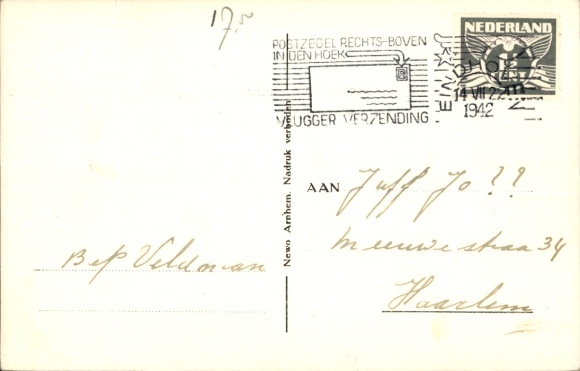 17.50
POSTZEGEL RECHTS-BOVEN
IN DEN HOEK
VLUGGER VERZENDING
NEDERLAND
14 VII 22
1942
Newo Arnhem. Nadruk verboden
AAN Juff Jo ??
Meeuwestraa 34
Haarlem
Bep Veldman